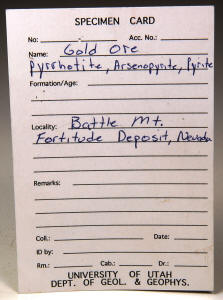 SPECIMEN CARD
No: - Acc. No.:
Name: Gold Ore
Pyrrhotite, Arsenopyrite, Pyrite
Formation/Age:
Locality: Battle Mt.
Fortitude Deposit, Nevada
Remarks:
Coll.: Date:
ID by:
Rm.: Cab.: Dr.:
UNIVERSITY OF UTAH
DEPT. OF GEOL. & GEOPHYS.